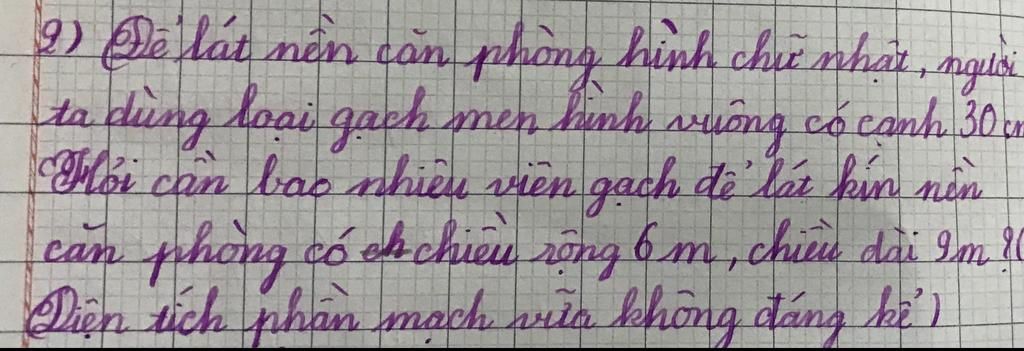 9) Để lát nền căn phòng hình chữ nhật, người
ta dùng loại gạch men hình vuông có cạnh 30 cm
Hỏi cần bao nhiêu viên gạch để lát kín nền
căn phòng có chiều rộng 6 m, chiều dài 9m ? (
Diện tích phần mạch vữa không đáng kể)